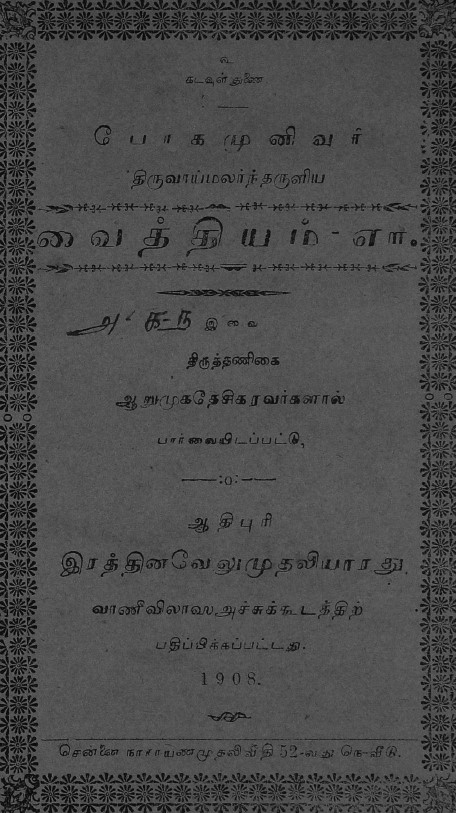 உ
கடவுள் துணை
போகமுனிவர்
திருவாய்மலர்ந்தருளிய
வைத்தியம்-எா.
இவை
திருத்தணிகை
ஆறுமுகதேசிகரவர்களால்
பார்வையிடப்பட்டு,
:o:
ஆதிபுரி
இரத்தினவேலுமுதலியாரது
வாணிவிலாஸ அச்சுக்கூடத்திற்
பதிப்பிக்கப்பட்டது.
1908.
சென்னை நாராயணமுதலிவீதி 52-வது நெ-வீடு.